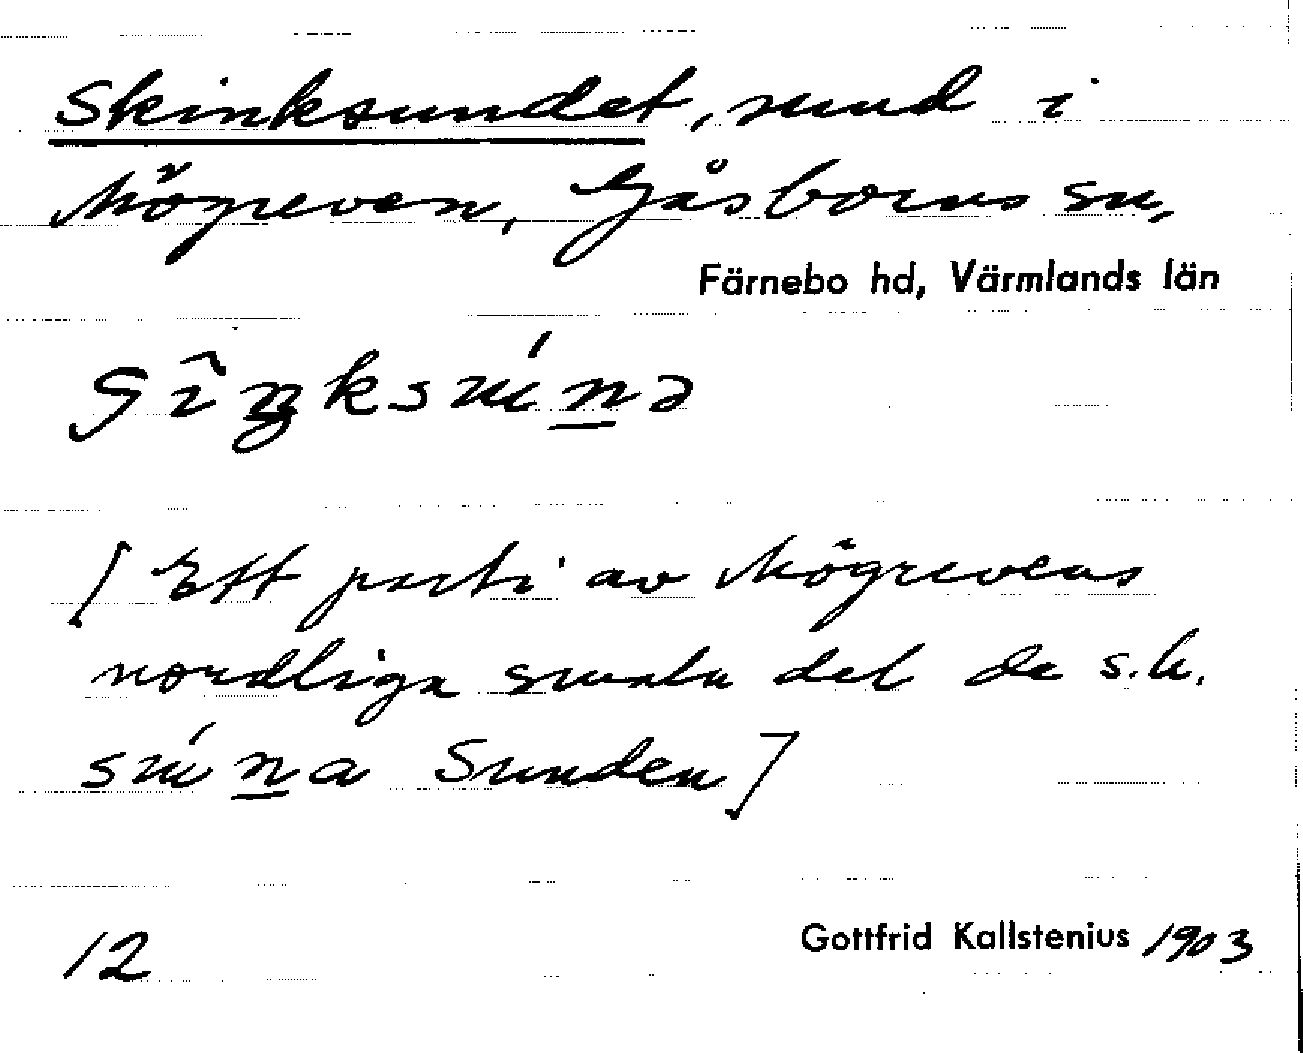 Skinksundet, sund i
Mögreven, Gåsborns sn,
Färnebo hd, Värmlands län
[Ett parti av Mögrevens
nordliga smala del de s.k.
Sunden]
12 Gottfrid Kallstenius 1903